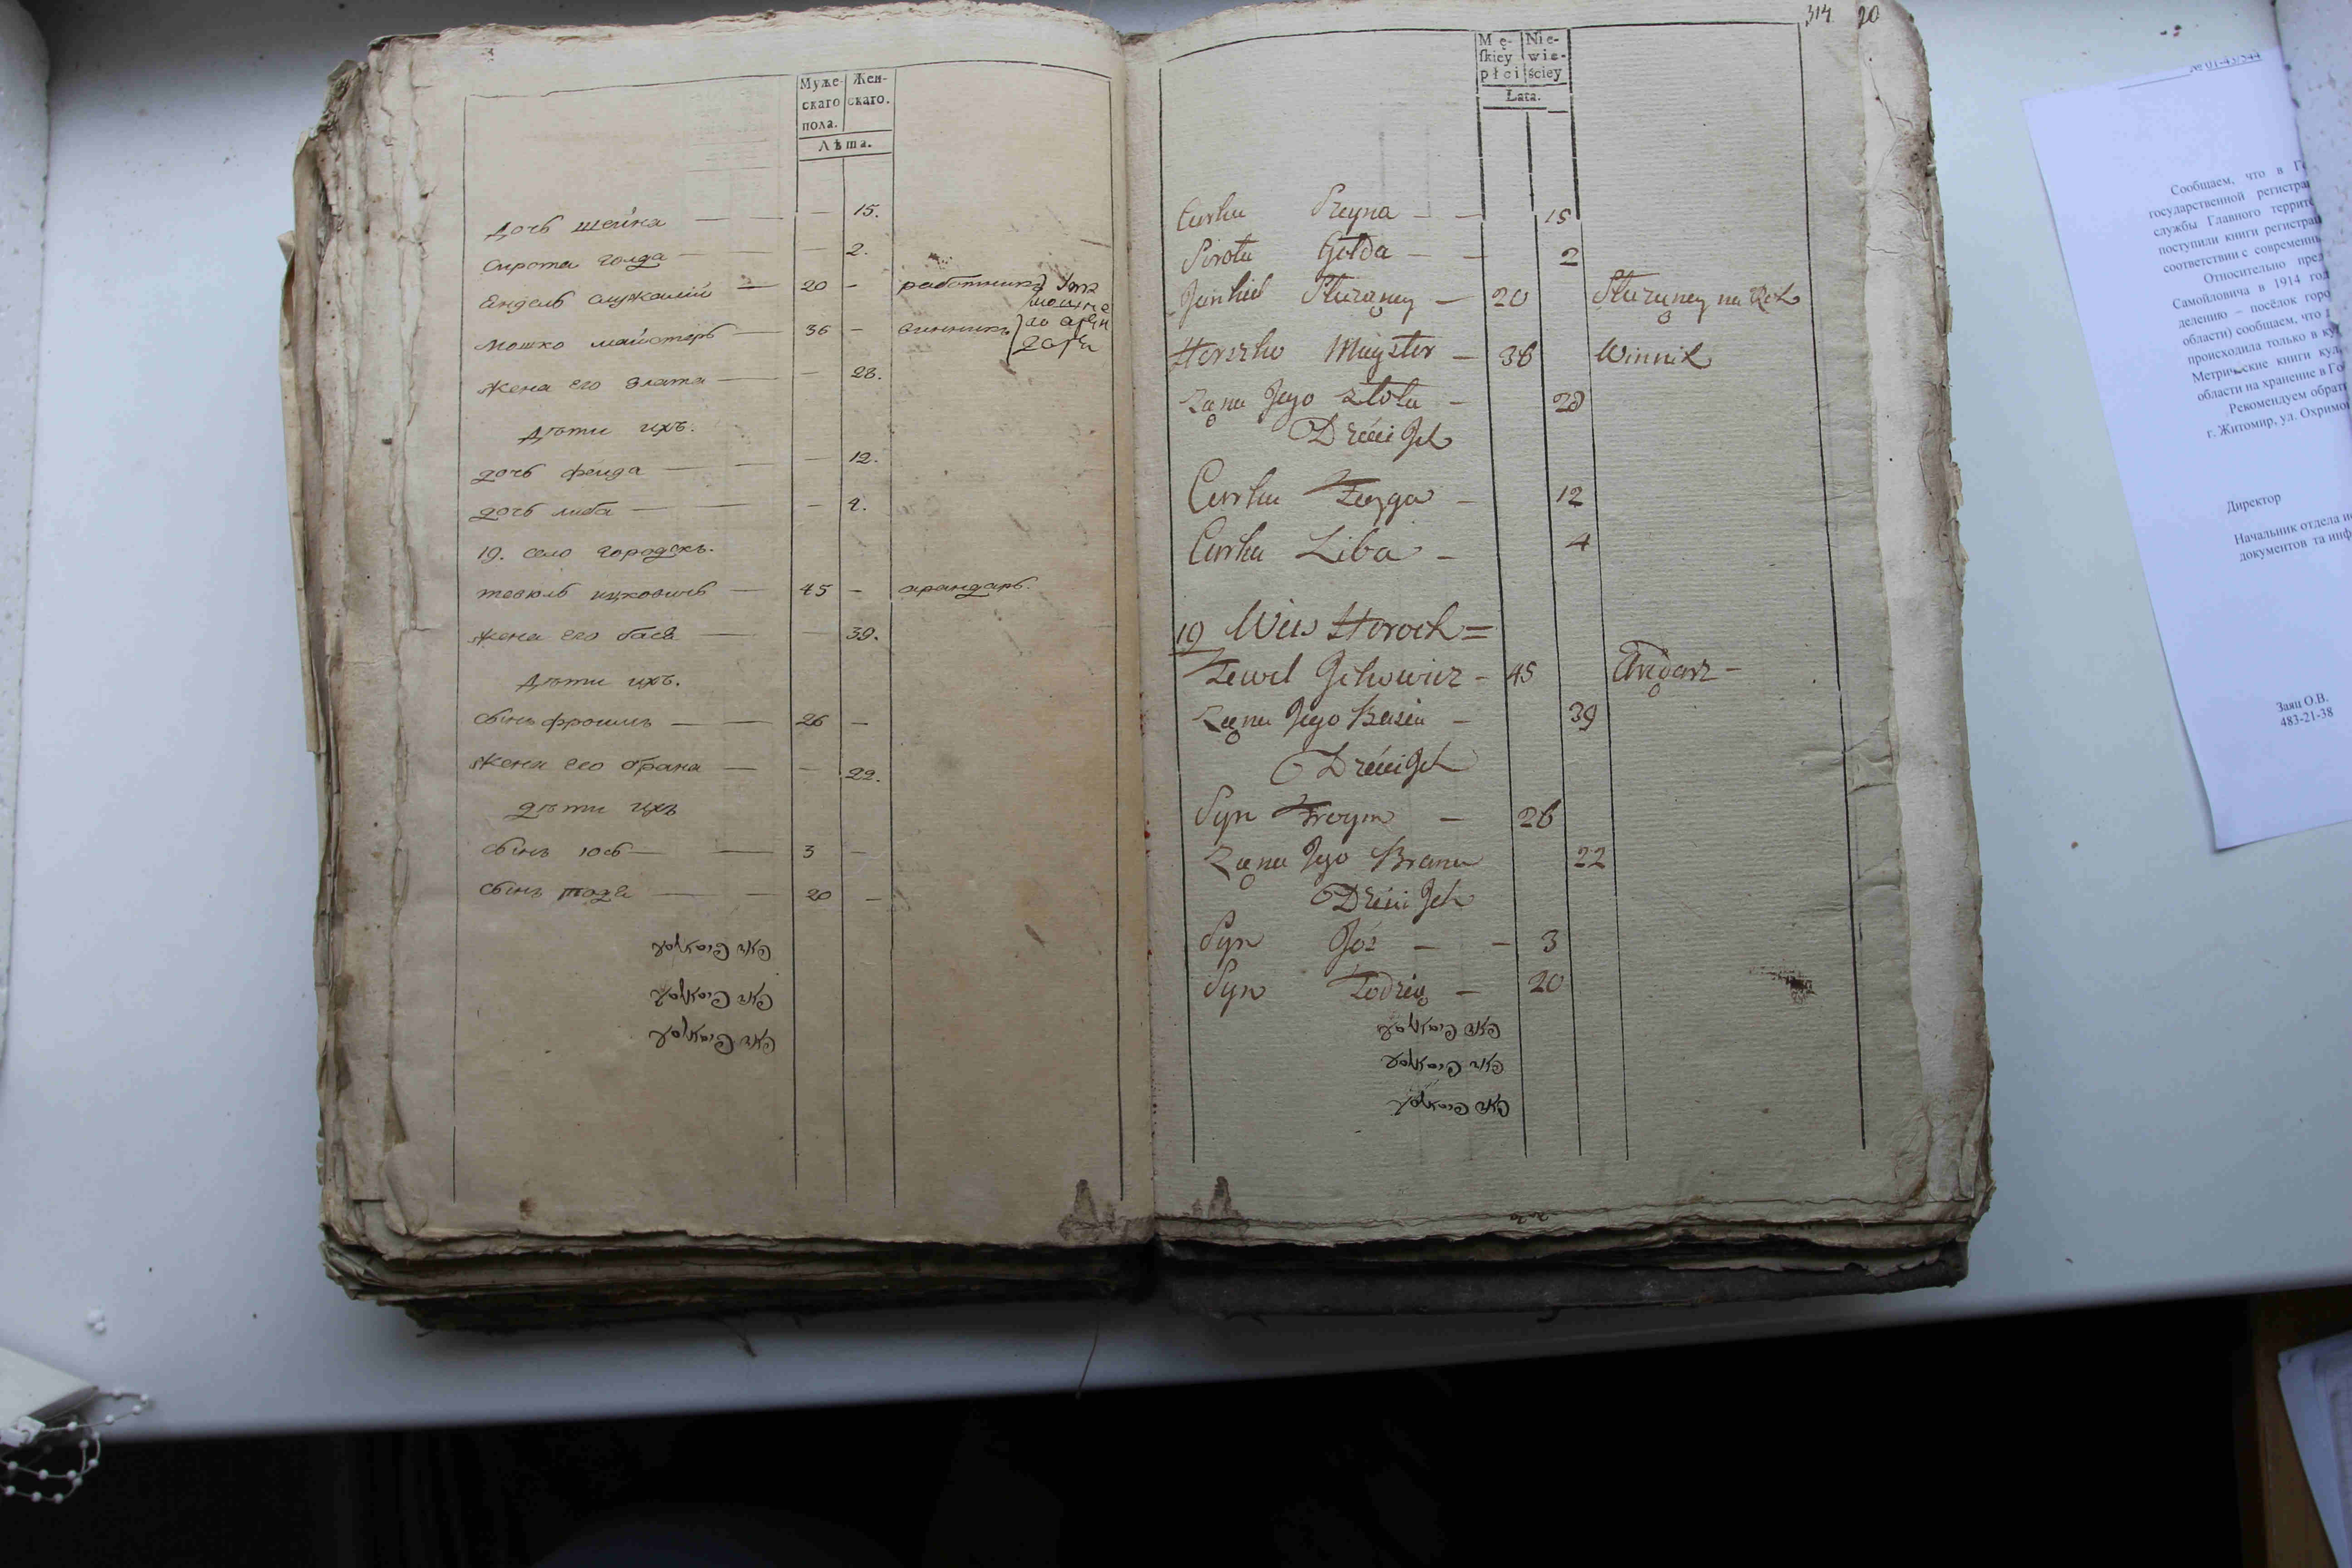 Муже-
скаго
пола.
Жен-
скаго.
Лѣта.
дочь шейна — — — 15.
сирота голда — — — 2.
Ендель служащій — 20 — работникъ
мошко майстеръ — 36 — винникъ
жена его злата — — 28.
дѣти ихъ.
дочь фейга — — — 12.
дочь либа — — — 4.
19. село городскъ.
тевель ицковичь — 45 — арандарь.
жена его бася — — 39.
дѣти ихъ.
сынъ фроимъ — — 26 —
жена его брана — — 22.
дѣти ихъ
сынъ юсь — — 3 —
сынъ тодя — — 20 —
314 20
Mę-
ſkiey
płci
Nie-
wie-
ściey
Lata.
Curka Szeyna — — 15
Sirota Gołda — — 2
— 20
Herszko Mayster — 36 Winnik
Żona Jego Złota — 28
Dzieci Ich
Curka Feyga — 12
Curka Liba — 4
19 Wieś Horock =
Tewel Ickowicz — 45 Arędarz —
Żona Jego Basia — 39
Dzieci Ich
Syn Froym — 26
Żona Jego Brana 22
Dzieci Ich
Syn Joś — — 3
Syn Todzio — 20
№ 01-43/544
Сообщаем, что в Г
государственной регистра
службы Главного террит
поступили книги регистрац
соответствии с современн
Относительно пред
Самойловича в 1914 год
делению – посёлок горо
области) сообщаем, что
происходила только в ку
Метрические книги ку
области на хранение в Го
Рекомендуем обрат
г. Житомир, ул. Охримо
Директор
Начальник отдела и
документов та инф
Заяц О.В.
483-21-38